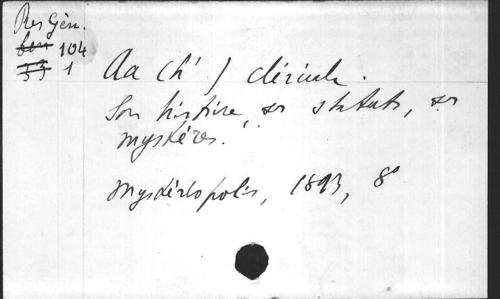 Res Gén.
104
1
Aa (L') cléricale.
Son histoire, ses statuts, ses
mystères.
Mystériopolis, 1893, 8°